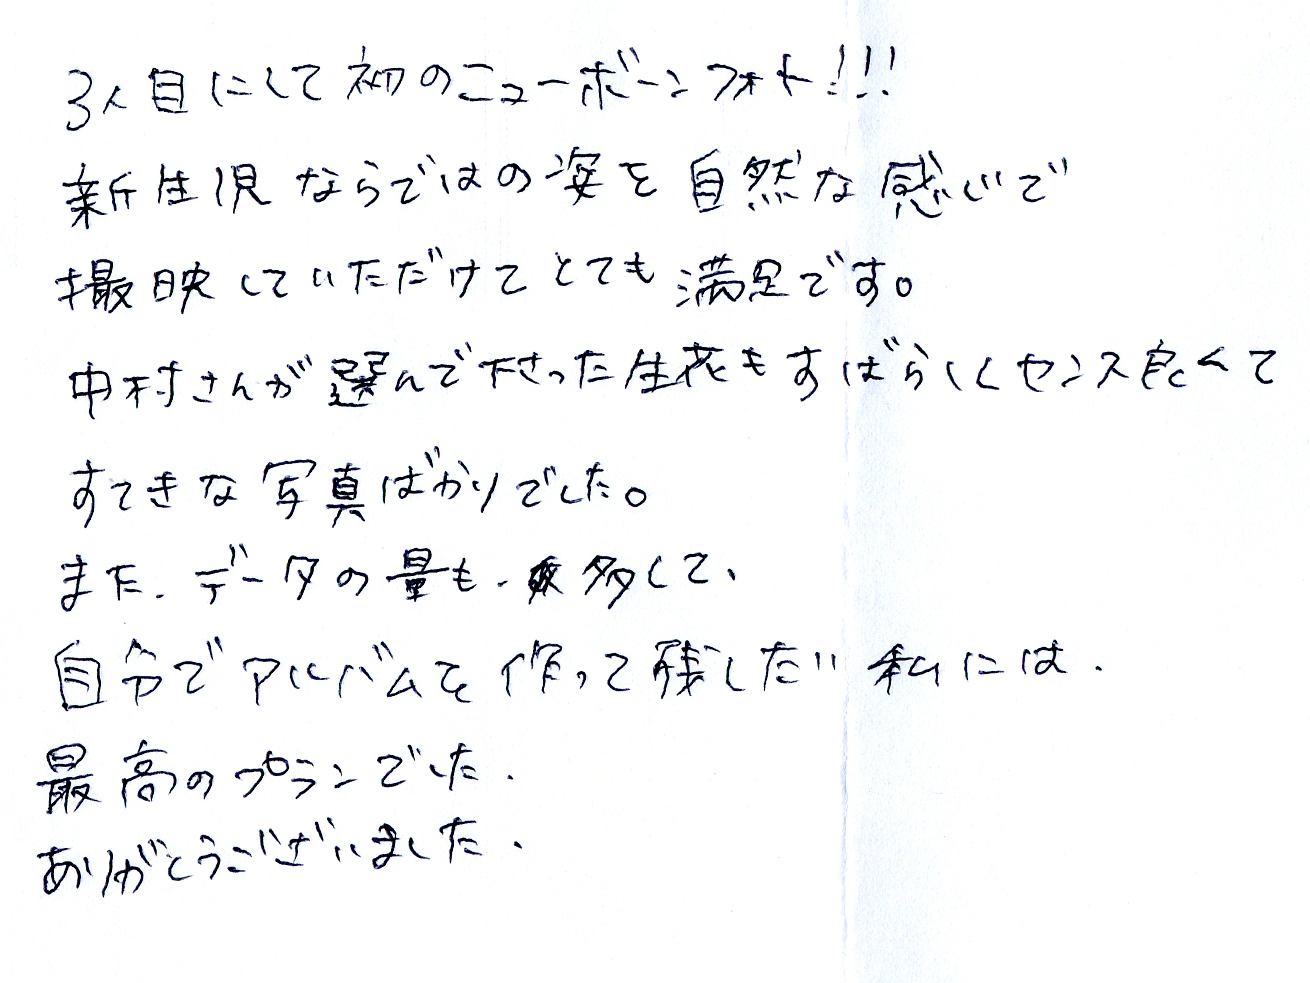 3人目にして初のニューボーンフォト!!!
新生児ならではの姿を自然な感じで
撮映していただけてとても満足です。
中村さんが選んで下さった生花もすばらしくセンス良くて
すてきな写真ばかりでした。
また、データの量も、多くて、
自分でアルバムを作って残したい私には、
最高のプランでした。
ありがとうございました。